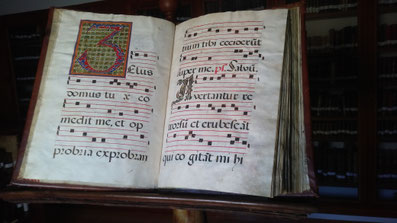 Zelus
domus tuæ co
medit me, et op
probria exprobran
tium tibi ceciderūt
super me. ps. Salvū.
Avertantur re
trorsū et erubescāt
qui cogitāt mihi